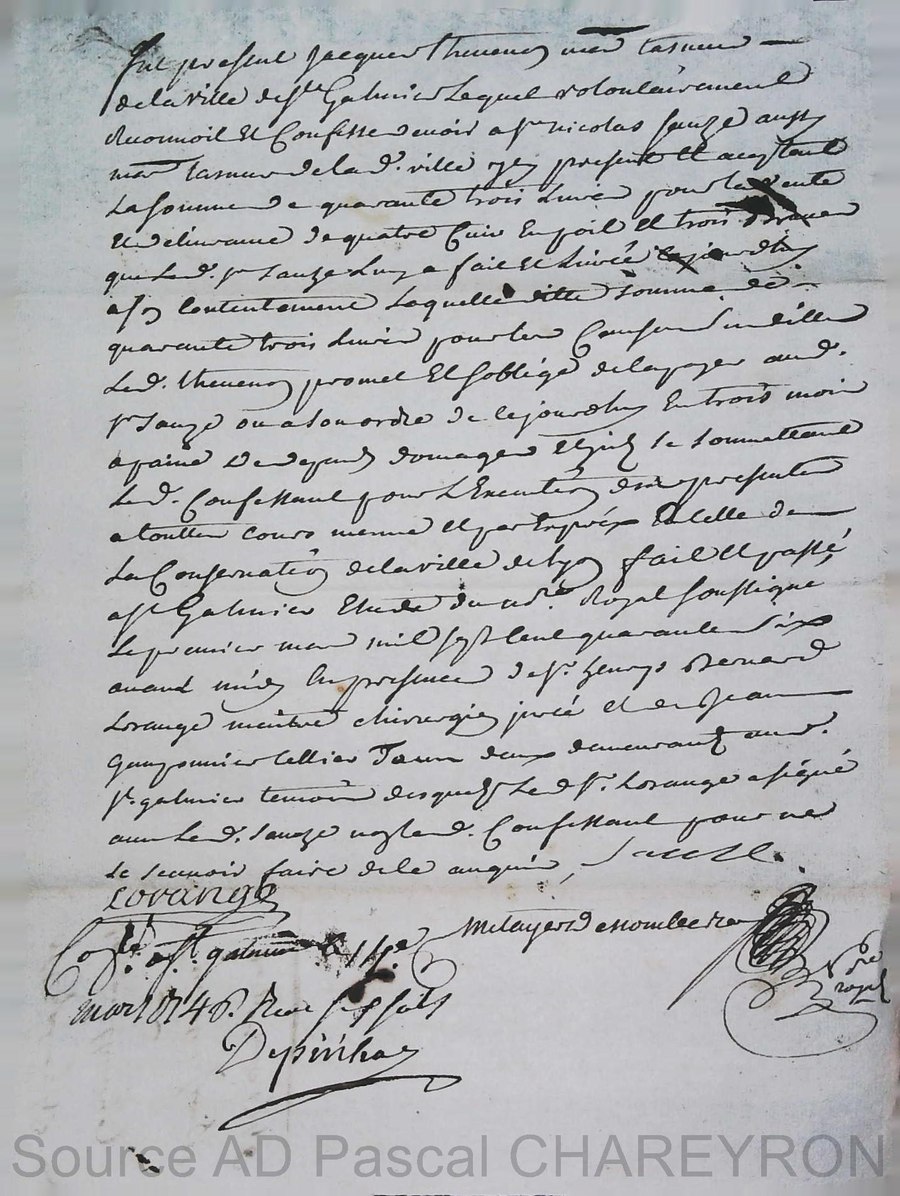 fut present Jacques thevenon md taneur
de la ville de st Galmier Lequel volontairement
Reconnoit Et Confesse devoir a sr nicolas sauze aussy
md taneur de la d. ville icy present Et aceptant
La somme de quarante trois Livres pour la vente
Et delivrance de quatre Cuir En poil Et trois
que Led. sr sauze Luy a fait Et Livré cejourdhuy
a son Contentement Laquelle ditte somme de
quarante trois Livres pour les Causes susdittes
Led. thevenon promet Et soblige de la payer aud.
sr sauze ou a son ordre de cejourdhuy En trois mois
a paine De depends domages Et se soumettant
Led. Confessant pour L'Execution des presentes
a touttes cours mesme Et par Exprés a celle de
La Conservation de la ville de Lyon fait Et passé
a st Galmier Etude du nore. Royal soussigné
Le premier mars mil sept Cent quarante six
avant midy En presence de sr. henry Bernard
Lorange maitre chirurgien juré et de Jean
sellier Tous deux demeurants aud.
st. galmier temoins desquels Led. sr. Lorange a signé
avec Led. sauze non Led. Confessant pour ne
Le scavoir faire de ce anquis Sauze.
Lorange
Collé. a st galmier le 11e nore royal
mars 1746. Receu sept sols